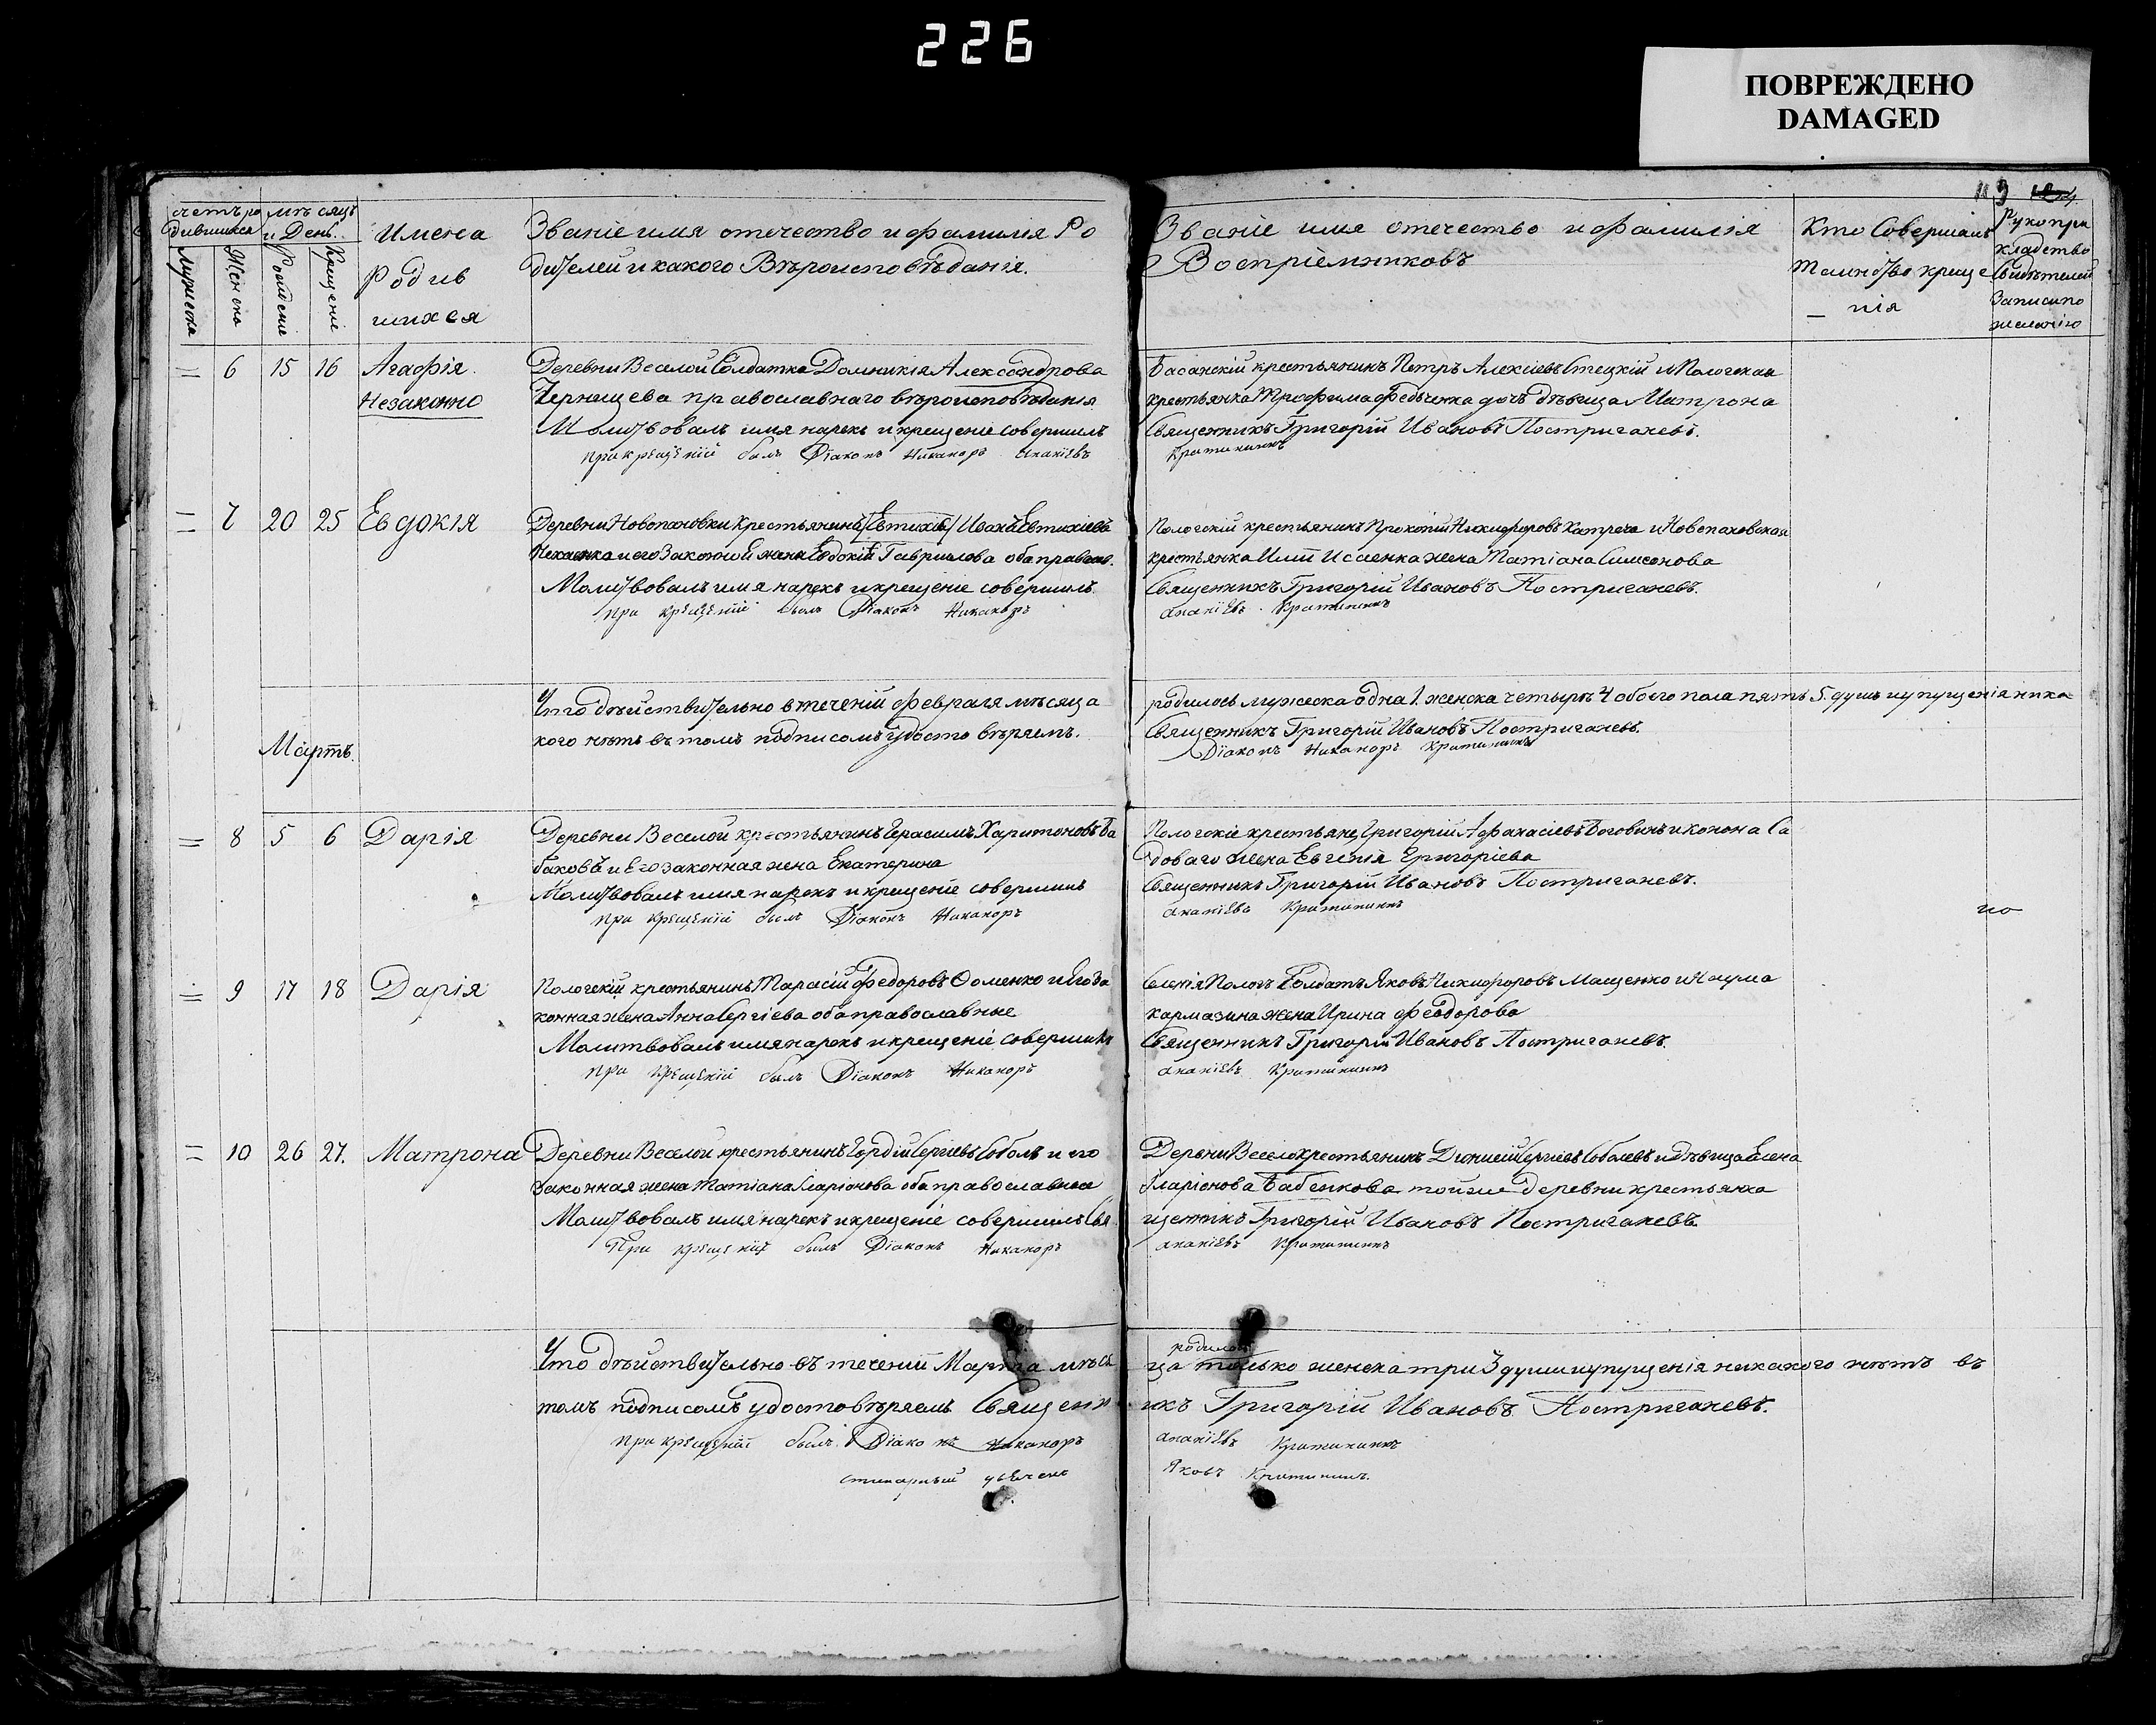 226
ПОВРЕЖДЕНО
DAMAGED
119
счетъ ро
дившихся
мѣсяцъ
и День
Мужеска
Женска
Рождение
Крещение
Имена
Родив
шихся
Званіе имя отечество и фамилія Ро
дителей и какого Вѣроисповѣданія.
Званіе имя отечество и фамилія
Воспріемниковъ
Кто Совершалъ
Таинство креще
нія
Рукопри
кладство
Свидѣтелей
записи по
желанію
6 15 16 Агафія
Незаконно
Деревни Веселой Солдатка Домникія Александрова
Чернищева православнаго вѣроисповѣданія
Молитвовалъ имя нарекъ и крещеніе совершилъ
при крещеніи былъ Діаконъ Никаноръ Ананіевъ
Басанскій крестьянинъ Петръ Алексіевъ Стецкій и Пологская
крестьянка Трофима Федченка дочь дѣвица Матрона
Священникъ Григорій Ивановъ Постригачевъ.
Кратининъ
7 20 25 Евдокія
Деревни Новопоновки крестьянина Иванъ Евтихіевъ
и его законной жена Евдокія Гавриилова оба правосл.
Молитвовалъ имя нарекъ и крещеніе совершилъ
при крещеніи былъ Діаконъ Никаноръ
Пологскій крестьянинъ Прокопій Никифоровъ и Новопоновская
крестьянка жена Татіана Симеонова
Священникъ Григорій Ивановъ Постригачевъ.
Ананіевъ Кратининъ
Что дѣйствительно в теченіи Февраля мѣсяца
кого нѣтъ въ томъ подписомъ удосто вѣряемъ.
родилось мужеска одна 1. женска четырѣ 4 обоего пола пять 5. душъ и упущенія ника
Священникъ Григорій Ивановъ Постригачевъ.
Діаконъ Никаноръ Кратининъ
Мартъ.
8 5 6 Дарія
Деревни Веселой крестьянинъ Герасимъ Харитоновъ Ба
баковъ и Его законная жена Екатерина
Молитвовалъ имя нарекъ и крещеніе совершилъ
при крещеніи былъ Діаконъ Никаноръ
Пологскіе крестьяне Григорій Афанасіевъ Боговинъ и Конона Са
доваго жена Евгенія Григоріева
Священникъ Григорій Ивановъ Постригачевъ.
Ананіевъ Кратининъ
9 17 18 Дарія
Пологскій крестьянинъ Тарасій Федоровъ Фоменко и Его за
конная жена Анна Сергіева оба православные
Молитвовалъ имя нарекъ и крещеніе совершилъ
при крещеніи былъ Діаконъ Никаноръ
Селенія Пологъ Солдатъ Яковъ Никифоровъ Мащенко и Наума
кармазина жена Ирина Феодорова
Священникъ Григорій Ивановъ Постригачевъ
Ананіевъ Кратининъ
10 26 27. Матрона
Деревни Веселой крестьянинъ Гордій Сергіевъ Соболь и его
законная жена Татіана Иларіонова оба православные
Молитвовалъ имя нарекъ и крещеніе совершилъ Свя
При крещеніи былъ Діаконъ Никаноръ
Деревни Веселой крестьянинъ Діонисій Сергіевъ Соболевъ и дѣвица Елена
Иларіонова Бабенкова тойже деревни крестьянка
щенникъ Григорій Ивановъ Постригачевъ
Ананіевъ Кратининъ
Что дѣйствительно въ теченіи Марта мѣся
томъ подписомъ удостовѣряемъ Священн
при крещеніи былъ Діаконъ Никаноръ
родилось
ца только женска три 3 души и упущенія никакого нѣтъ въ
икъ Григорій Ивановъ Постригачевъ.
Ананіевъ Кратининъ
Яковъ Кратининъ.